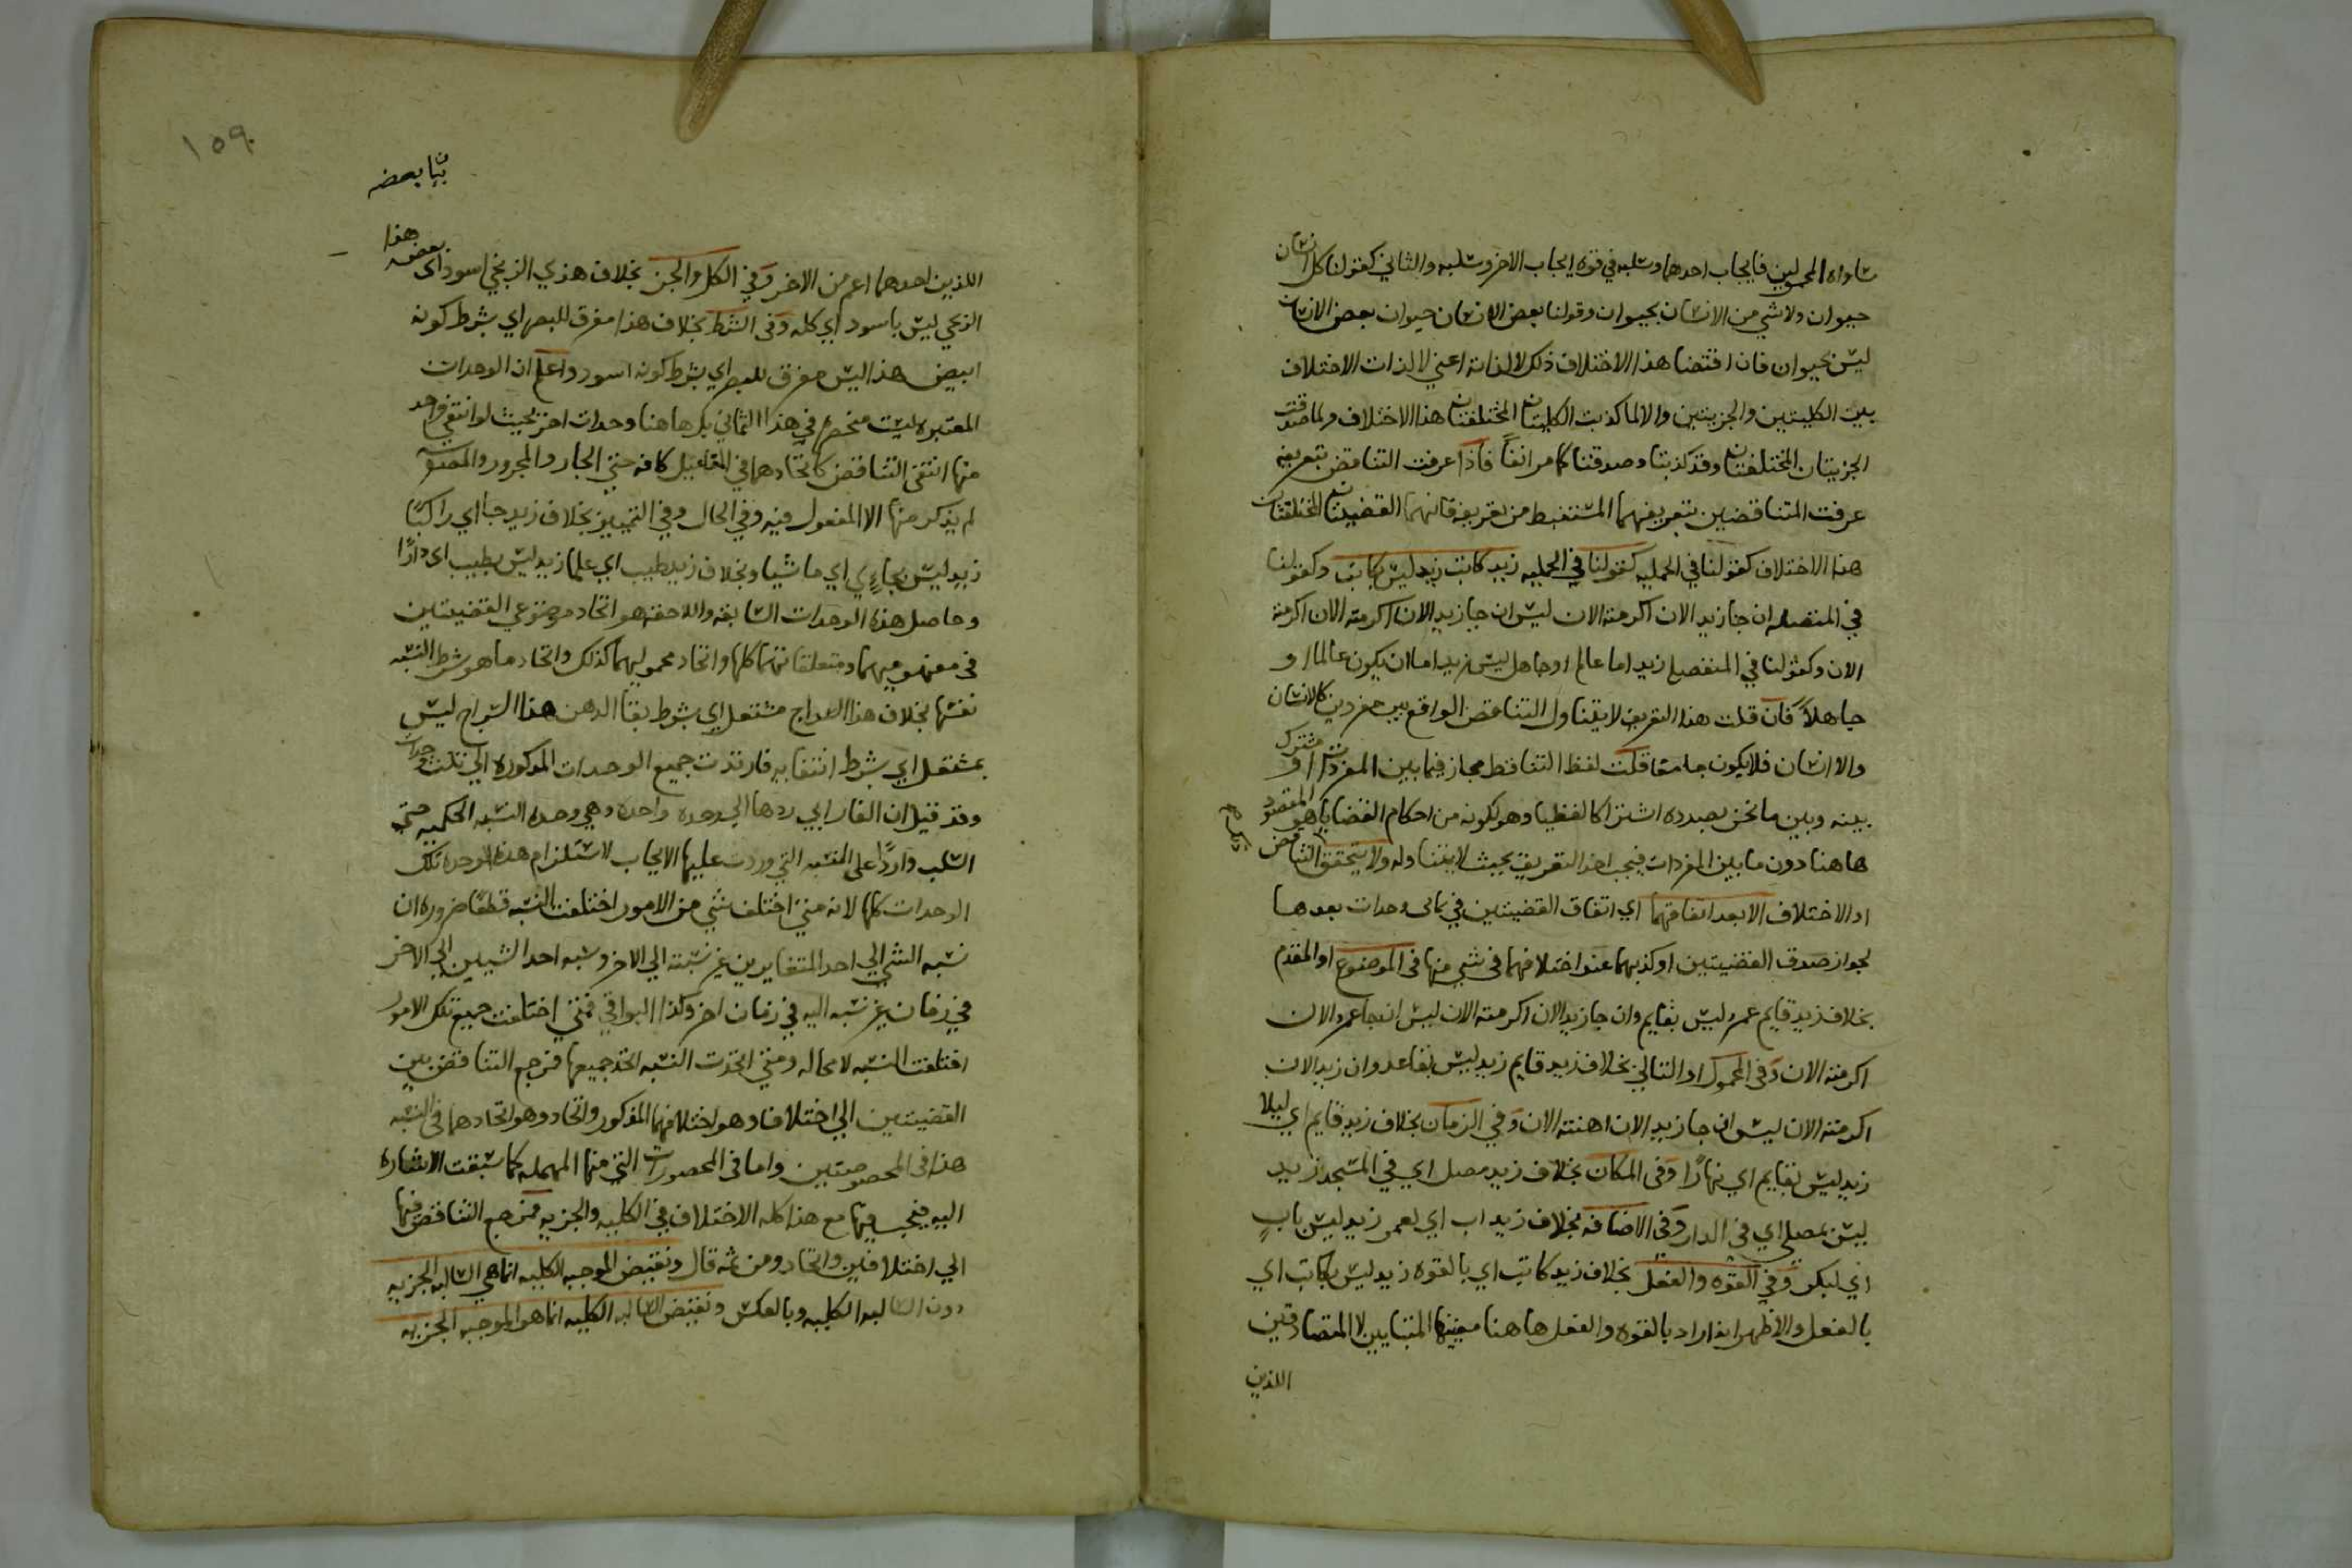 مساواه المحمولين فايجاب احدهما وسلبه في قوة ايجاب الاخر وسلبه والثاني كقولنا كل انسان
حيوان ولا شي من الانسان بحيوان وقولنا بعض الانسان حيوان بعض الانسان
ليس بحيوان فان اقتضا هذا الاختلاف ذلك لا لذاته اعني لا لذات الاختلاف
بين الكليتين والجزيتين والا لما كذبت الكليتان المختلفتان هذا الاختلاف ولما صدقت
الجزيتان المختلفتان وقد كذبتا وصدقتا كما مر انفا فاذا عرفت التناقض بتعريفه
عرفت المتناقضين بتعريفهما المستنبط من تعريفه فانهما القضيتان المختلفتان
هذا الاختلاف كقولنا في الحمليه كقولنا في الحمليه زيد كاتب زيد ليس بكاتب وكقولنا
في المتصله ان جا زيد الان اكرمته الان ليس ان جا زيد الان اكرمته الان اكرمته
الان وكقولنا في المنفصله زيد اما عالم او جاهل ليس زيد اما ان يكون عالما او
جاهلا فان قلت هذا التعريف لا يتناول التناقض الواقع بين مفردين كالانسان
والا انسان فلا يكون جامعا قلت لفظ التناقض مجاز فيما بين المفردات او مشترك
بينه وبين ما نحن بصدده اشتراكا لفظيا وهو لكونه من احكام القضايا هو المقصود
هاهنا دون ما بين المفردات فيجب اخذ التعريف بحيث لا يتناوله ولا يتحقق التناقض
او الاختلاف الا بعد اتفاقهما اي اتفاق القضيتين في ثماني وحدات بعدها
لجواز صدق القضيتين او كذبهما عند اختلافهما في شي منها في الموضوع او المقدم
بخلاف زيد قايم عمرو ليس بقايم وان جا زيد الان اكرمته الان ليس ان جا عمرو الان
اكرمته الان وفي المحمول او التالي بخلاف زيد قايم زيد ليس بقاعد وان زيد الان
اكرمته الان ليس ان جا زيد الان اهنته الان وفي الزمان بخلاف زيد قايم اي ليلا
زيد ليس بقايم اي نهارا وفي المكان بخلاف زيد مصل اي في المسجد زيد
ليس بمصلي اي في الدار وفي الاضافه بخلاف زيد اب اي لعمرو زيد ليس باب
اي لبكر وفي القوه والفعل بخلاف زيد كاتب اي بالقوه زيد ليس بكاتب اي
بالفعل والاظهر انه اراد بالقوه والفعل هاهنا معنييهما المتباينين لا المتصادقين
اللذين
١٥٩
بيا بعضه
اللذين احدهما اعم من الاخر وفي الكل والجز بخلاف هذي الزنجي اسود اي بعضه هذا
الزنجي ليس باسود اي كله وفي الشرط بخلاف هذا مفرق للبصر اي بشرط كونه
ابيض هذا ليس مفرق للبصر اي بشرط كونه اسود واعلم ان الوحدات
المعتبره ليست منحصره في هذا الثماني بل هاهنا وحدات اخر بحيث لو انتفى واحد
منها انتفى التناقض كاتحادهما في التفاعيل كافه حتي الجار والمجرور والمصنف
لم يذكر منها الا المفعول فيه وفي الحال وفي التمييز بخلاف زيد جا اي راكبا
زيد ليس بجاءي اي ماشيا وبخلاف زيد طيب اي علما زيد ليس بطيب اي دارا
وحاصل هذه الوحدات السابقه واللاحقه هو اتحاد موضوعي القضيتين
في مفهوميهما ومتعلقاتهما كلها واتحاد محموليهما كذلك واتحاد ما هو شرط النسبه
نفسها بخلاف هذا السراج مشتعل اي بشرط بقا الدهن هذا السراج ليس
بمشتعل اي بشرط انتفايه فارتدت جميع الوحدات المذكوره الي ثلث وحدات
وقد قيل ان الفارابي ردها الي وحده واحده وهي وحده النسبه الحكميه حتي
السلب واردا على النسبه التي وردت عليها الايجاب لاستلزام هذه الوحده تلك
الوحدات كلها لانه متي اختلف شي من الامور اختلفت النسبه قطعا ضروره ان
نسبه الشي الي احد المتغايرين غير نسبته الي الاخر ونسبه احد الشيين الي الاخر
في زمان غير نسبه اليه في زمان اخر وكذا البواقي فمتي اختلفت جميع تلك الامور
اختلفت النسبه لا محاله ومتي اتحدت النسبه اتحد جميعها فمرجع التناقض بين
القضيتين الي اختلاف وهو اختلافهما المذكور واتحاد وهو اتحادهما في النسبه
هذا في المخصوصتين واما في المحصورات التي منها المهمله كما سبقت الاشاره
اليه فيجب فيها مع هذا كله الاختلاف في الكليه والجزيه فمرجع التناقض فيها
الي اختلافين واتحاد ومن ثمه قال ونقيض الموجبه الكليه انما هي السالبه الجزيه
دون السالبه الكليه وبالعكس ونقيض السالبه الكليه انما هو الموجبه الجزيه